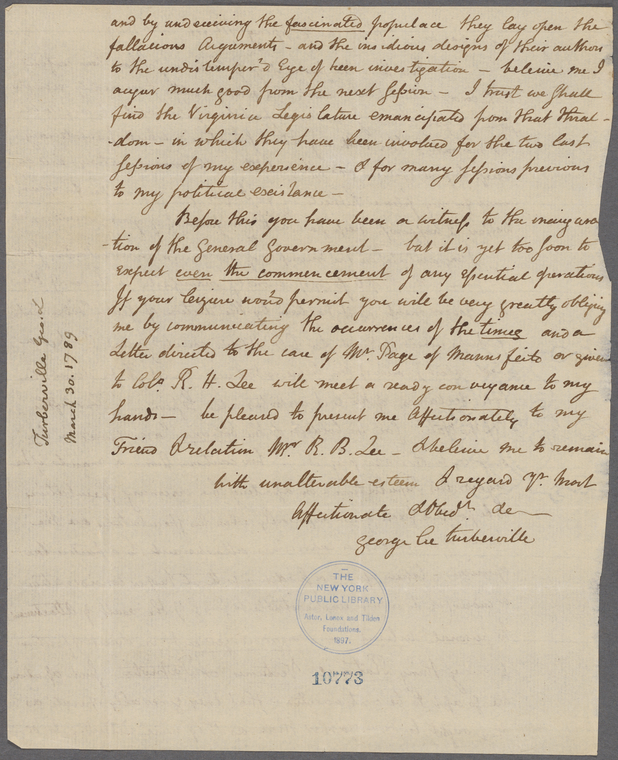 and by undeceiving the fascinated populace they lay open the
fallacious Arguments - and the insidious designs of their authors
to the undistemper'd Eye of keen investigation - beleive me I
augur much good from the next Session - I trust we shall
find the Virginia Legislature emancipated from that thral-
-dom - in which they have been involved for the two last
Sessions of my experience - & for many sessions previous
to my political existance -
Before this you have been a witness to the inaugura
-tion of the General Government - but it is yet too soon to
expect even the commencement of any Essential operations
If your leizure wou'd permit you will be very greatly obliging
me by communicating the occurrences of the times and a
Letter directed to the care of Mr. Page of Mannsfeild or given
to Colo. R. H. Lee will meet a ready conveyance to my
hands - be pleased to present me Affectionately to my
Friend & relation Mr. R. B. Lee - & beleive me to remain
with unalterable esteem & regard yr. Most
Affectionate & Obedt. &c
George Lee Turberville
Turberville Geo. L
March 30. 1789
THE
NEW YORK
PUBLIC LIBRARY
Astor, Lenox and Tilden
Foundations.
1897.
10773